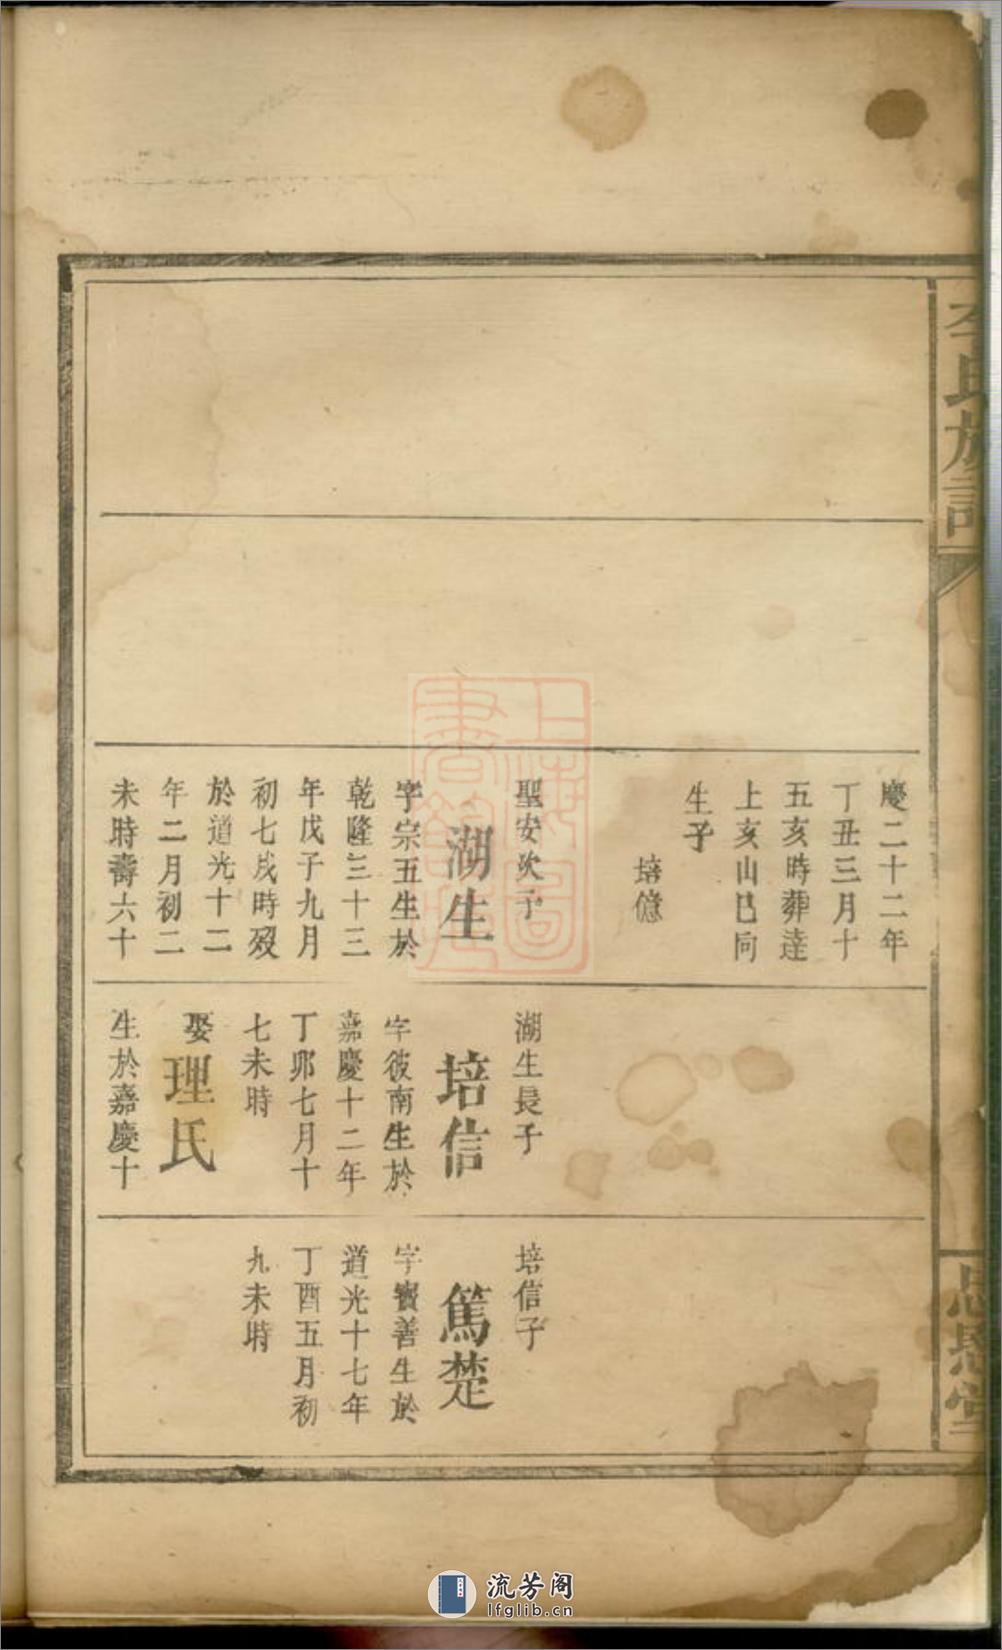 李氏族譜
思恩堂
慶二十二年
丁丑三月十
五亥時葬逹
上亥山巳向
生子
培億
聖安次子
湖生
字宗五生於
乾隆三十三
年戊子九月
初七戌時殁
於道光十二
年二月初二
未時壽六十
湖生長子
培信
字彼南生於
嘉慶十二年
丁卯七月十
七未時
娶
理氏
生於嘉慶十
培信子
篤楚
字寳善生於
道光十七年
丁酉五月初
九未時
上海圖
書館藏
流芳阁
lfglib.cn